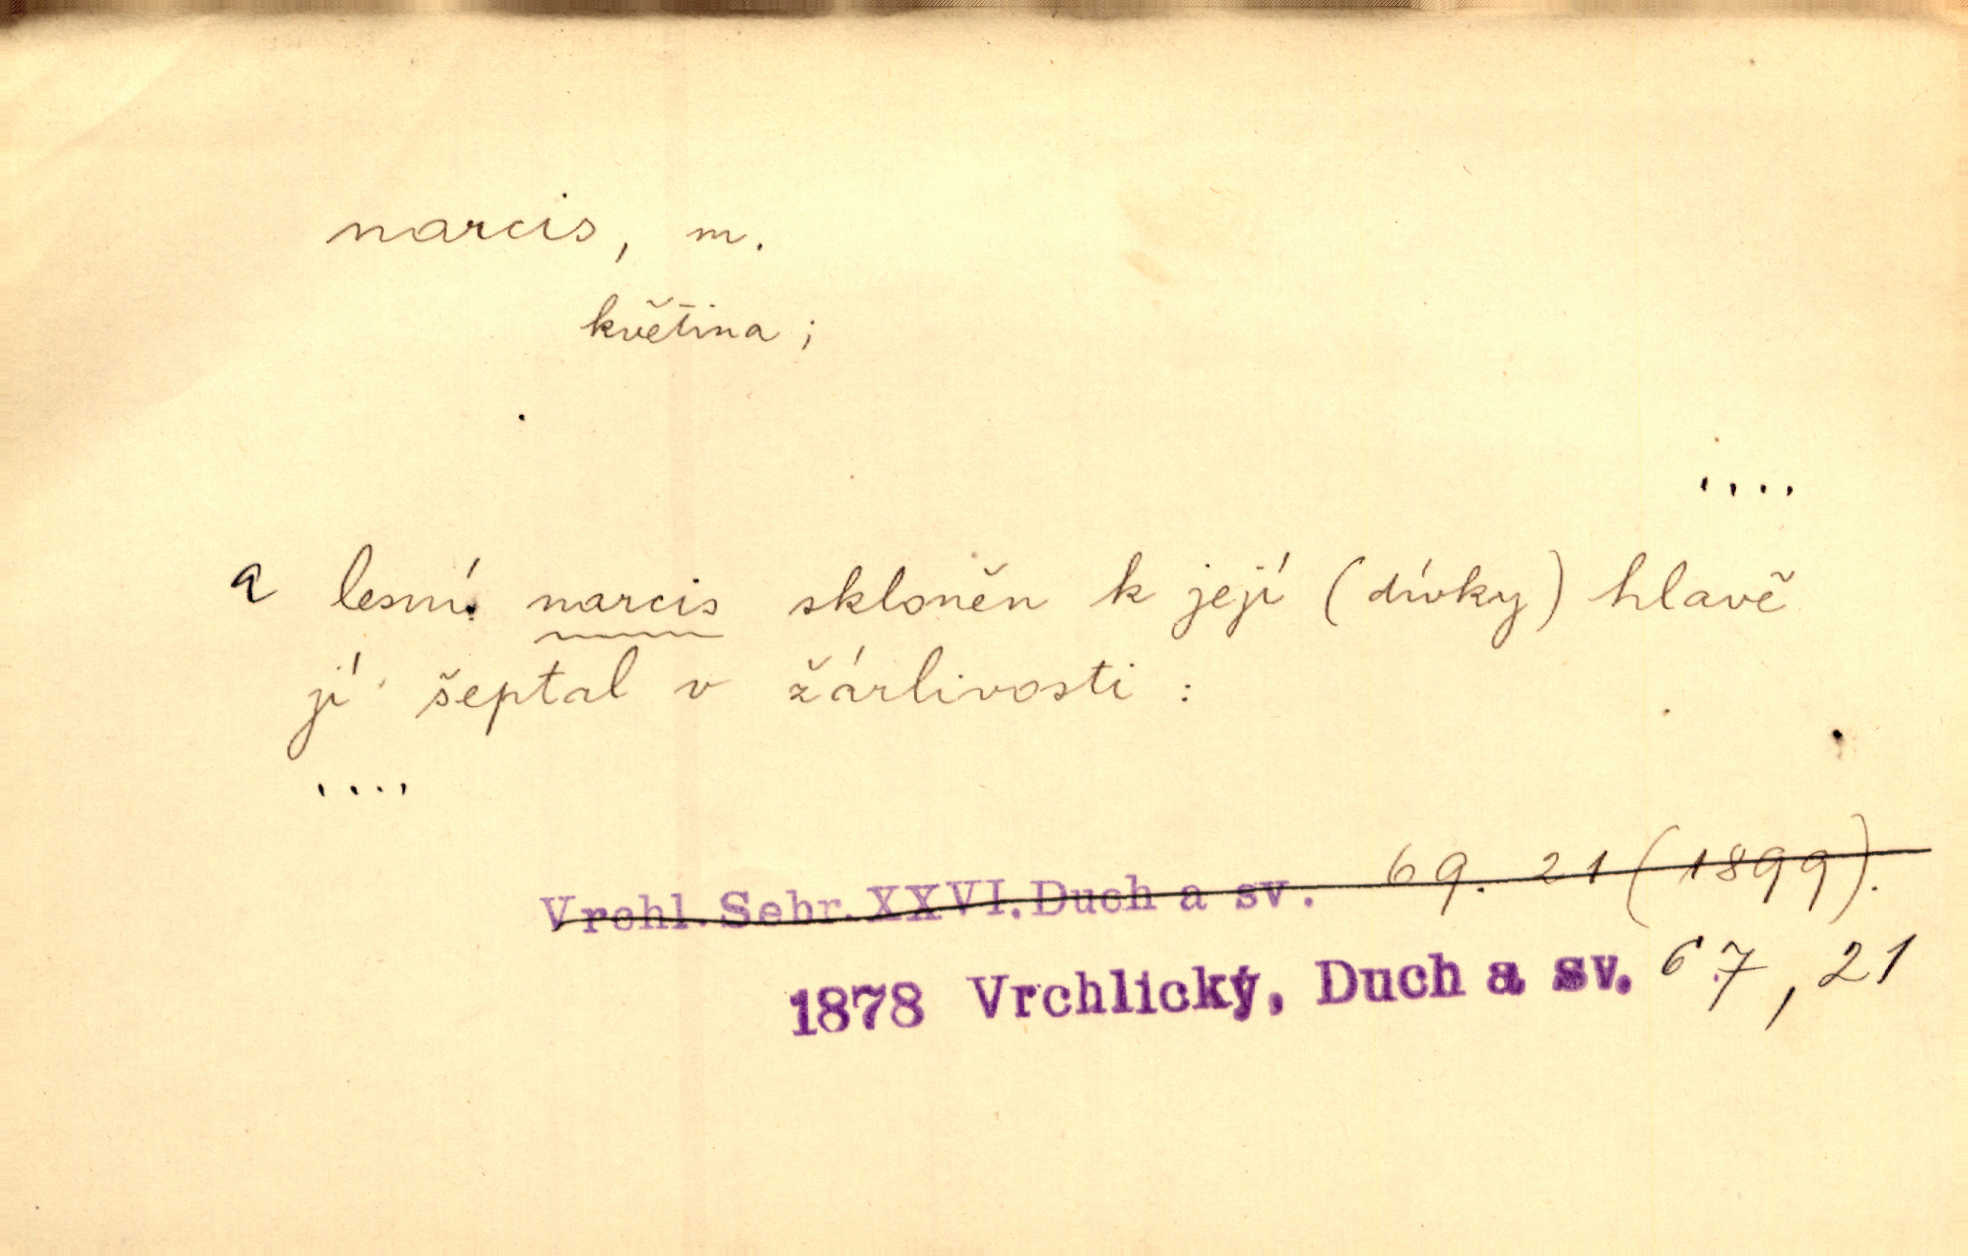 narcis, m.
květina;
....
a lesní narcis skloněn k její (dívky) hlavě
jí šeptal v žárlivosti:
....
Vrchl. Sebr. XXVI. Duch a sv. 69. 21 (1899).
1878 Vrchlický, Duch a sv. 67, 21